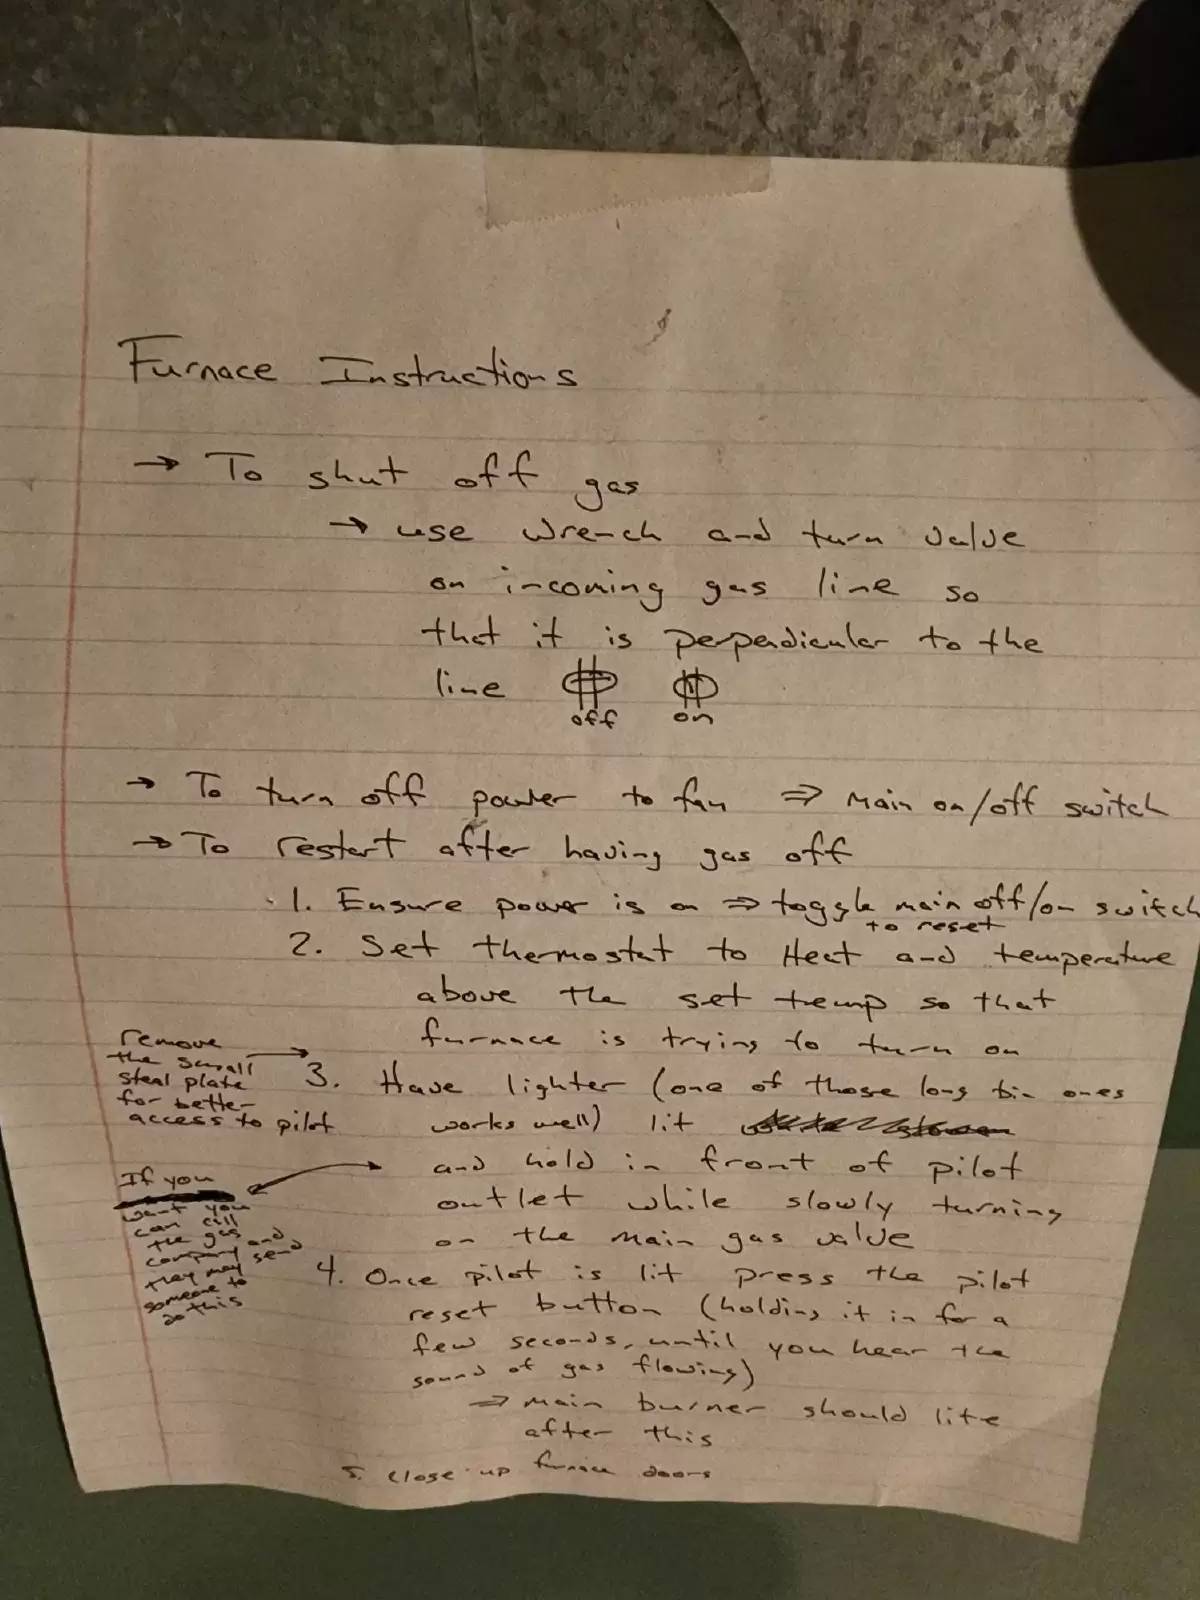 Furnace Instructions
→ To shut off gas
→ use wrench and turn valve
on incoming gas line so
that it is perpendicular to the
line
off on
→ To turn off power to fan ⇒ main on/off switch
→ To restart after having gas off
1. Ensure power is on ⇒ toggle main off/on switch
to reset
2. Set thermostat to Heat and temperature
above the set temp so that
furnace is trying to turn on
remove
the small
steal plate
for better
access to pilot
3. Have lighter (one of those long bic ones
works well) lit
and hold in front of pilot
outlet while slowly turning
on the main gas valve
If you
want you
can call
the gas
company and
they may send
someone to
do this
4. Once pilot is lit press the pilot
reset button (holding it in for a
few seconds, until you hear the
sound of gas flowing)
⇒ main burner should lite
after this
5. close up furnace doors